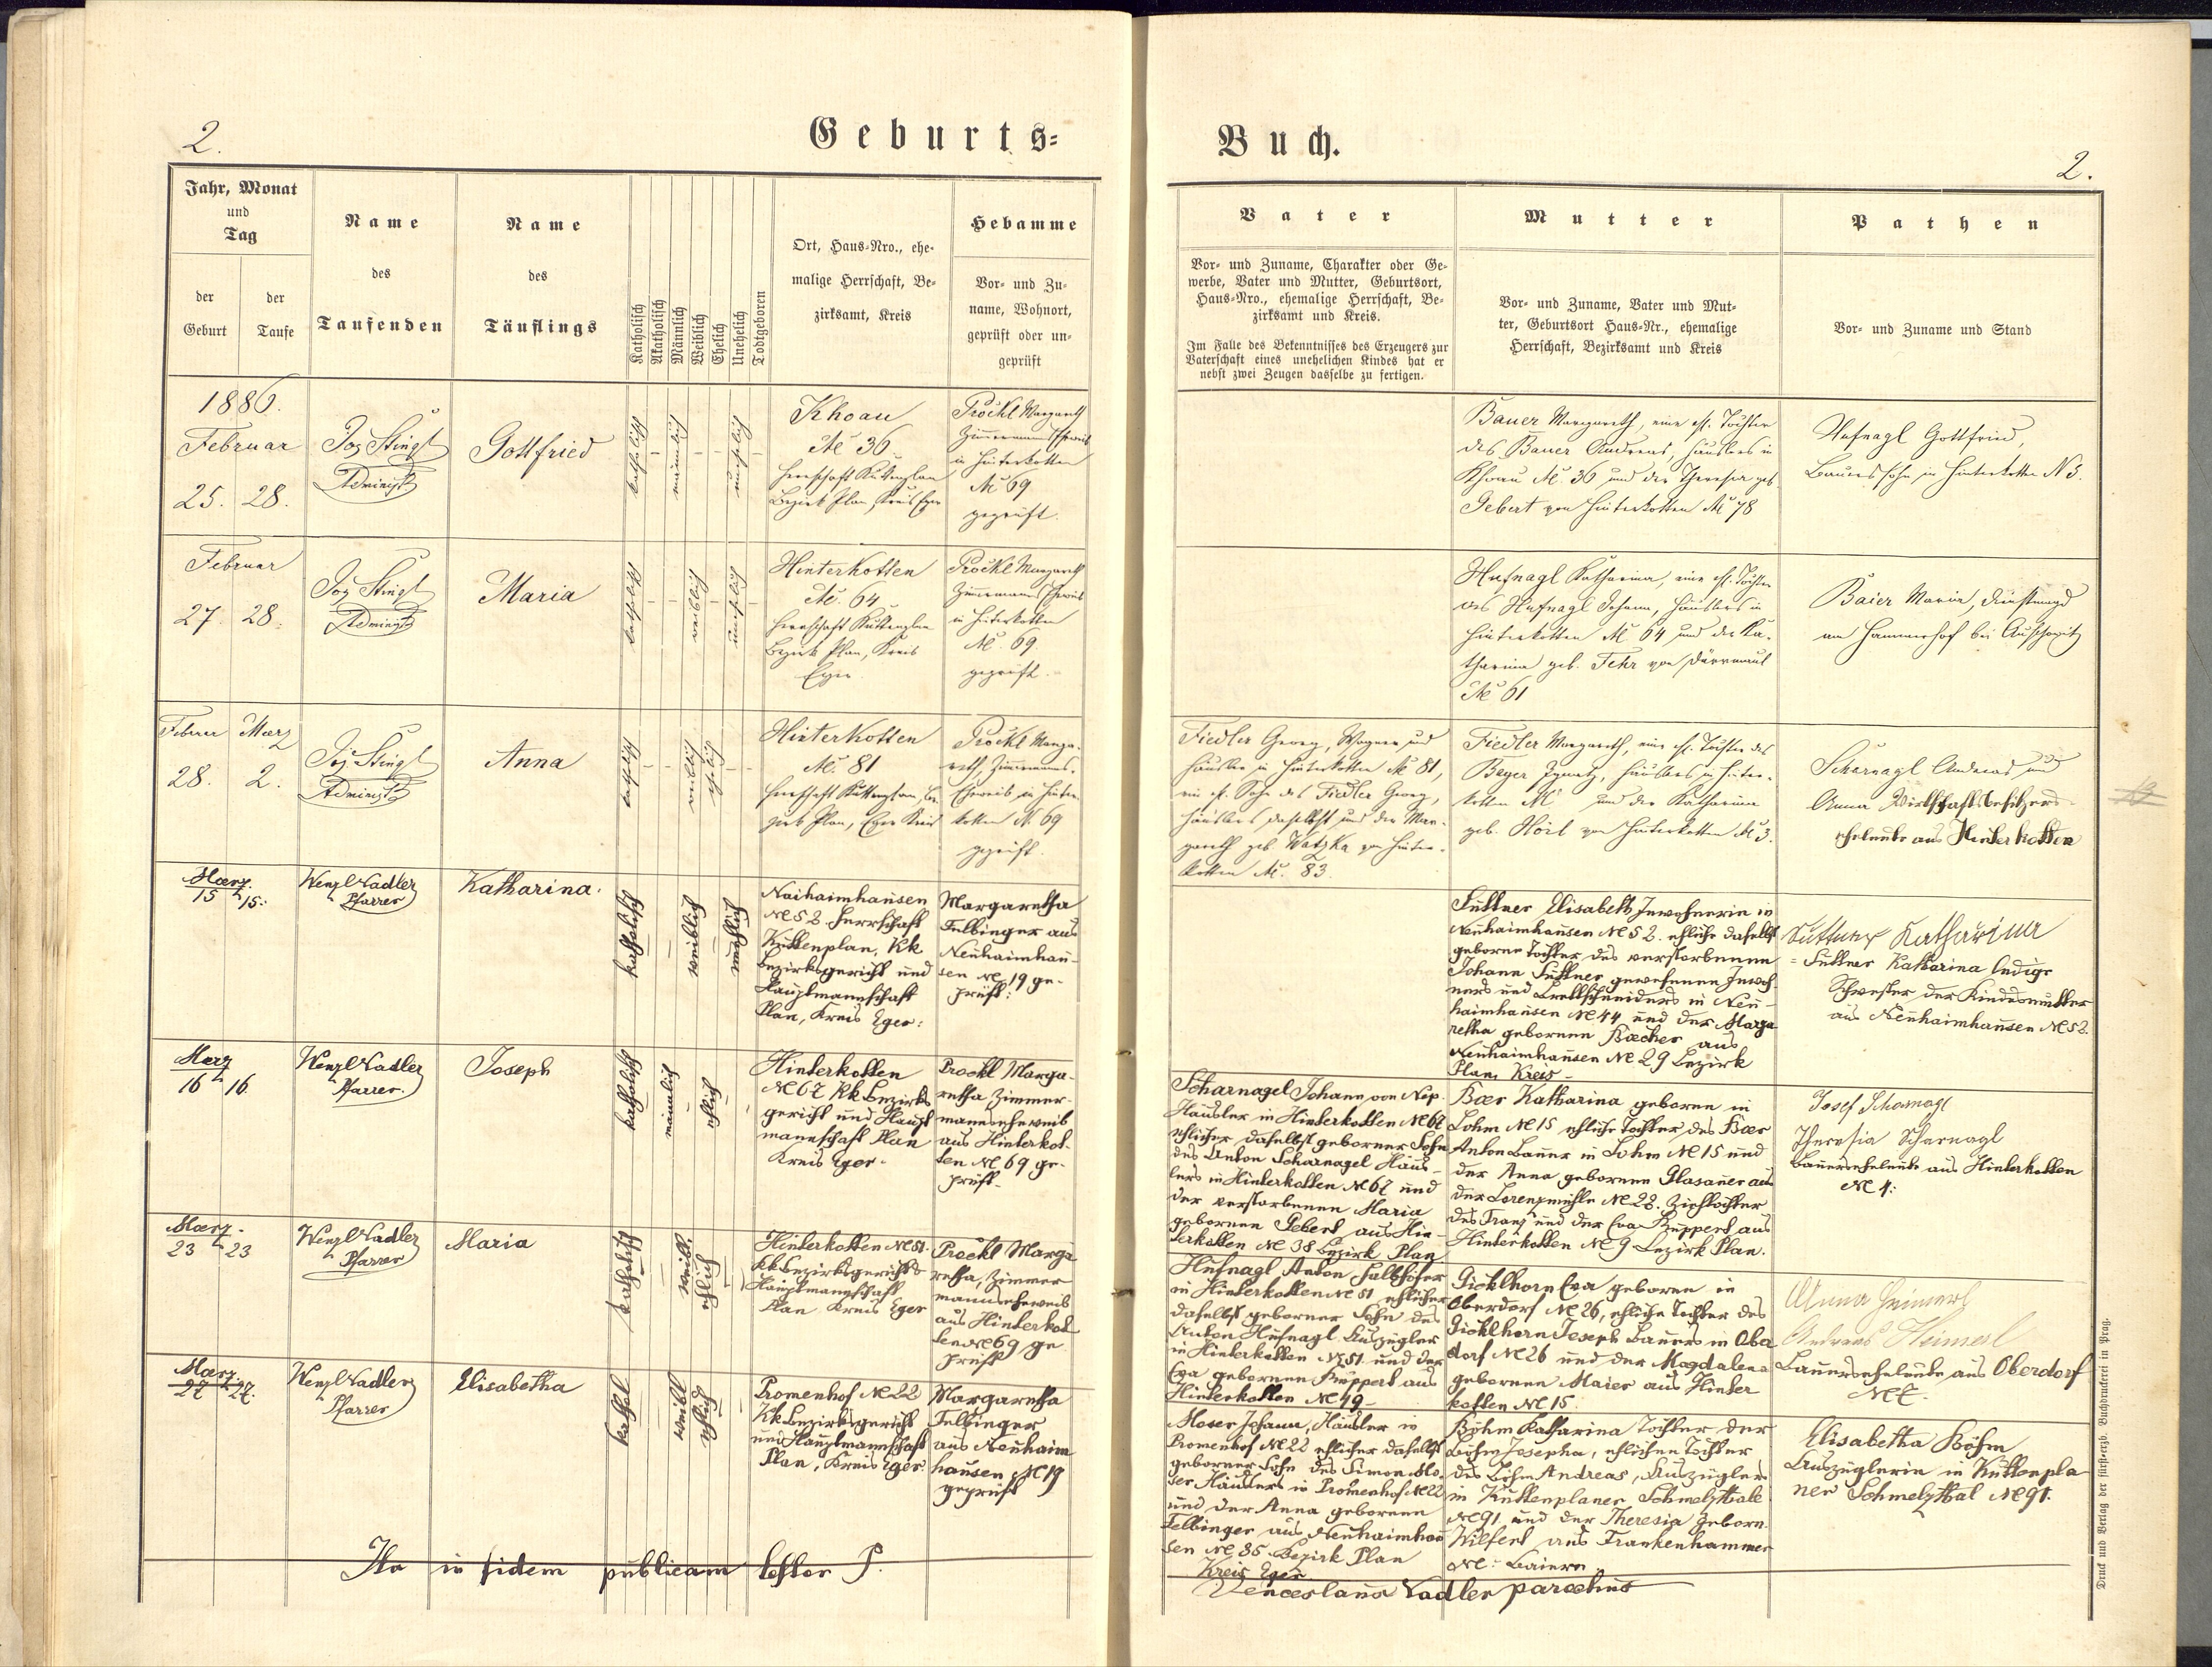 2.
Geburts=
Jahr, Monat
und
Tag
der
Geburt
der
Taufe
Name
des
Taufenden
Name
des
Täuflings
Katholisch
Akatholisch
Männlich
Weiblich
Ehelich
Unehelich
Todtgeboren
Ort, Haus=Nro., ehe-
malige Herrschaft, Be-
zirksamt, Kreis
Hebamme
Vor= und Zu-
name, Wohnort,
geprüft oder un-
geprüft
1886.
Februar
25. 28.
Jos Stingl
Administ
Gottfried
katholisch
männlich
unehelich
Khoau
№ 36
Herrschaft Kuttenplan
Bezirk Plan, Kreis Eger
Pröckl Margareth
Zimmermanns Eheweib
in Hinterkotten
№ 69
geprüft.
Februar
27. 28.
Jos Stingl
Administ
Maria
katholisch
weiblich
unehelich
Hinterkotten
№. 64
Herrschaft Kuttenplan
Bezirk Plan, Kreis
Eger
Pröckl Margareth
Zimmermanns Eheweib
in Hinterkotten
№. 69.
geprüft.
Februar März
28. 2.
Jos. Stingl
Administ
Anna
katholisch
weiblich
ehelich
Hinterkotten
№. 81
Herrschaft Kuttenplan, Be-
zirk Plan, Eger Kreis
Pröckl Marga-
reth, Zimmermanns-
Eheweib in Hinter-
kotten №. 69
geprüft.
Maerz.
15 15.
Wenzl Nadler
Pfarrer
Katharina.
katholisch
weiblich
unehlich
Naihaimhausen
№ 52. Herrschaft
Kuttenplan, kk
Bezirksgericht und
Hauptmannschaft
Plan, Kreis Eger.
Margaretha
Felbinger aus
Neuhaimhau-
sen № 19 ge-
prüft.
Maerz
16 16.
Wenzl Nadler
Pfarrer.
Joseph
katholisch
mainnlich
ehlich
Hinterkotten
№ 67 kk Bezirks
gericht und Haupt
mannschaft Plan
Kreis Eger.
Proekl Marga-
retha Zimmer-
mannseheweib
aus Hinterkot-
ten № 69 ge-
prüft.
Maerz.
23 23
Wenzl Nadler
Pfarrer
Maria
katholisch
weibl.
ehlich
Hinterkotten № 51.
kk Bezirksgericht
Hauptmannschaft
Plan Kreis Eger
Proekl Marga
retha, Zimmer
mannseheweib
aus Hinterkot
ten № 69 ge
prüft
Maerz.
27 27.
Wenzl Nadler
Pfarrer
Elisabetha
kathol
weibl
ehlich
Promenhof № 22
kk Bezirksgericht
und Hauptmannschaft
Plan, Kreis Eger.
Margaretha
Felbinger
aus Neuhaim
hausen № 19
geprüft
Ita in fidem publicam testor P.
Buch.
2.
Vater
Vor= und Zuname, Charakter oder Ge-
werbe, Vater und Mutter, Geburtsort,
Haus=Nro., ehemalige Herrschaft, Be-
zirksamt und Kreis.
Im Falle des Bekenntnisses des Erzeugers zur
Vaterschaft eines unehelichen Kindes hat er
nebst zwei Zeugen dasselbe zu fertigen.
Mutter
Vor= und Zuname, Vater und Mut-
ter, Geburtsort Haus=Nr., ehemalige
Herrschaft, Bezirksamt und Kreis
Pathen
Vor= und Zuname und Stand
Bauer Margareth, eine ehl. Tochter
des Bauer Andreas, Häuslers in
Khoau №. 36 und der Theresia geb
Gebert von Hinterkotten № 78
Hufnagl Gottfried,
Bauerssohn in Hinterkotten N 5.
Hufnagl Katharina, eine ehl. Tochter
des Hufnagl Johann, Häuslers in
Hinterkotten № 64 und der Ka-
tharina geb. Fehr von Dürrmaul
№ 61
Baier Maria, Dienstmagd
am Hammerhof bei Auschowitz
Fiedler Georg, Wagner und
Häusler in Hinterkotten № 81,
ein ehl. Sohn des Fiedler Georg,
Häuslers daselbst und der Mar-
gareth geb Watzka von Hinter-
kotten №. 83.
Fiedler Margareth, eine ehl. Tochter des
Beyer Ignatz, Häuslers in Hinter-
kotten № und der Katharina
geb. Hörl von Hinterkotten № 3.
Scharnagl Andreas und
Anna Wirtschaftsbesitzers-
eheleute aus Hinterkotten
Suttner Elisabeth Inwohnerin in
Neuhaimhausen № 52. ehliche daselbst
geborne Tochter des verstorbenen
Johann Suttner gewesenen Inwoh-
ners und Brettschneiders in Neu-
haimhausen № 44 und der Marga
retha gebornen Baecher aus
Neuhaimhausen № 29 Bezirk
Plan, Kreis -
Suttner Katharina
= Suttner Katharina ledige
Schwester der Kindesmutter
aus Neuhaimhausen № 52.
Scharnagel Johann von Nep.
Häusler in Hinterkotten № 67
ehlicher daselbst geborner Sohn
des Anton Scharnagel Häus-
lers in Hinterkotten № 67 und
der verstorbenen Maria
gebornen Gebert aus Hin-
terkotten № 38 Bezirk Plan
Baer Katharina geboren in
Lohm № 15 ehliche Tochter des Baer
Anton Bauer in Lohm № 15 und
der Anna gebornen Glasauer aus
der Lorenzmühle № 28. Ziehtochter
des Franz und der Eva Ruppert aus
Hinterkotten № 9 Bezirk Plan.
Josef Scharnagl
Theresia Scharnagl
Bauerseheleute aus Hinterkotten
№ 4.
Hufnagl Anton Halbhöfer
in Hinterkotten № 51 ehlicher
daselbst geborner Sohn des
Anton Hufnagl Auszügler
in Hinterkotten № 51 und der
Eva gebornen Ruppert aus
Hinterkotten № 49 -
Gicklhorn Eva geboren in
Oberdorf № 26, ehliche Tochter des
Gicklhorn Joseph Bauers in Ober
dorf № 26 und der Magdalena
gebornen Maier aus Hinter
kotten № 15.
Anna Heimerl
Andreas Heimerl
Bauerseheleute aus Oberdorf
№ 7.
Moser Johann, Häusler in
Promenhof № 22 ehlicher daselbst
geborner Sohn des Simon Mo-
ser Häuslers in Promenhof № 22
und der Anna gebornen
Felbinger aus Neuhaimhau
sen № 85 Bezirk Plan
Kreis Eger.
Böhm Katharina Tochter der
Böhm Josepha, ehlichen Tochter
des Böhm Andreas, Auszüglers
in Kuttenplaner Schmelzthale
№ 91 und der Theresia geborn.
Wilfert aus Frankenhammer
№ - Baiern.
Elisabetha Böhm
Auszüglerin in Kuttenpla
ner Schmelzthal № 91.
Venceslaus Nadler parochus
Druck und Verlag der fürsterzb. Buchdruckerei in Prag.